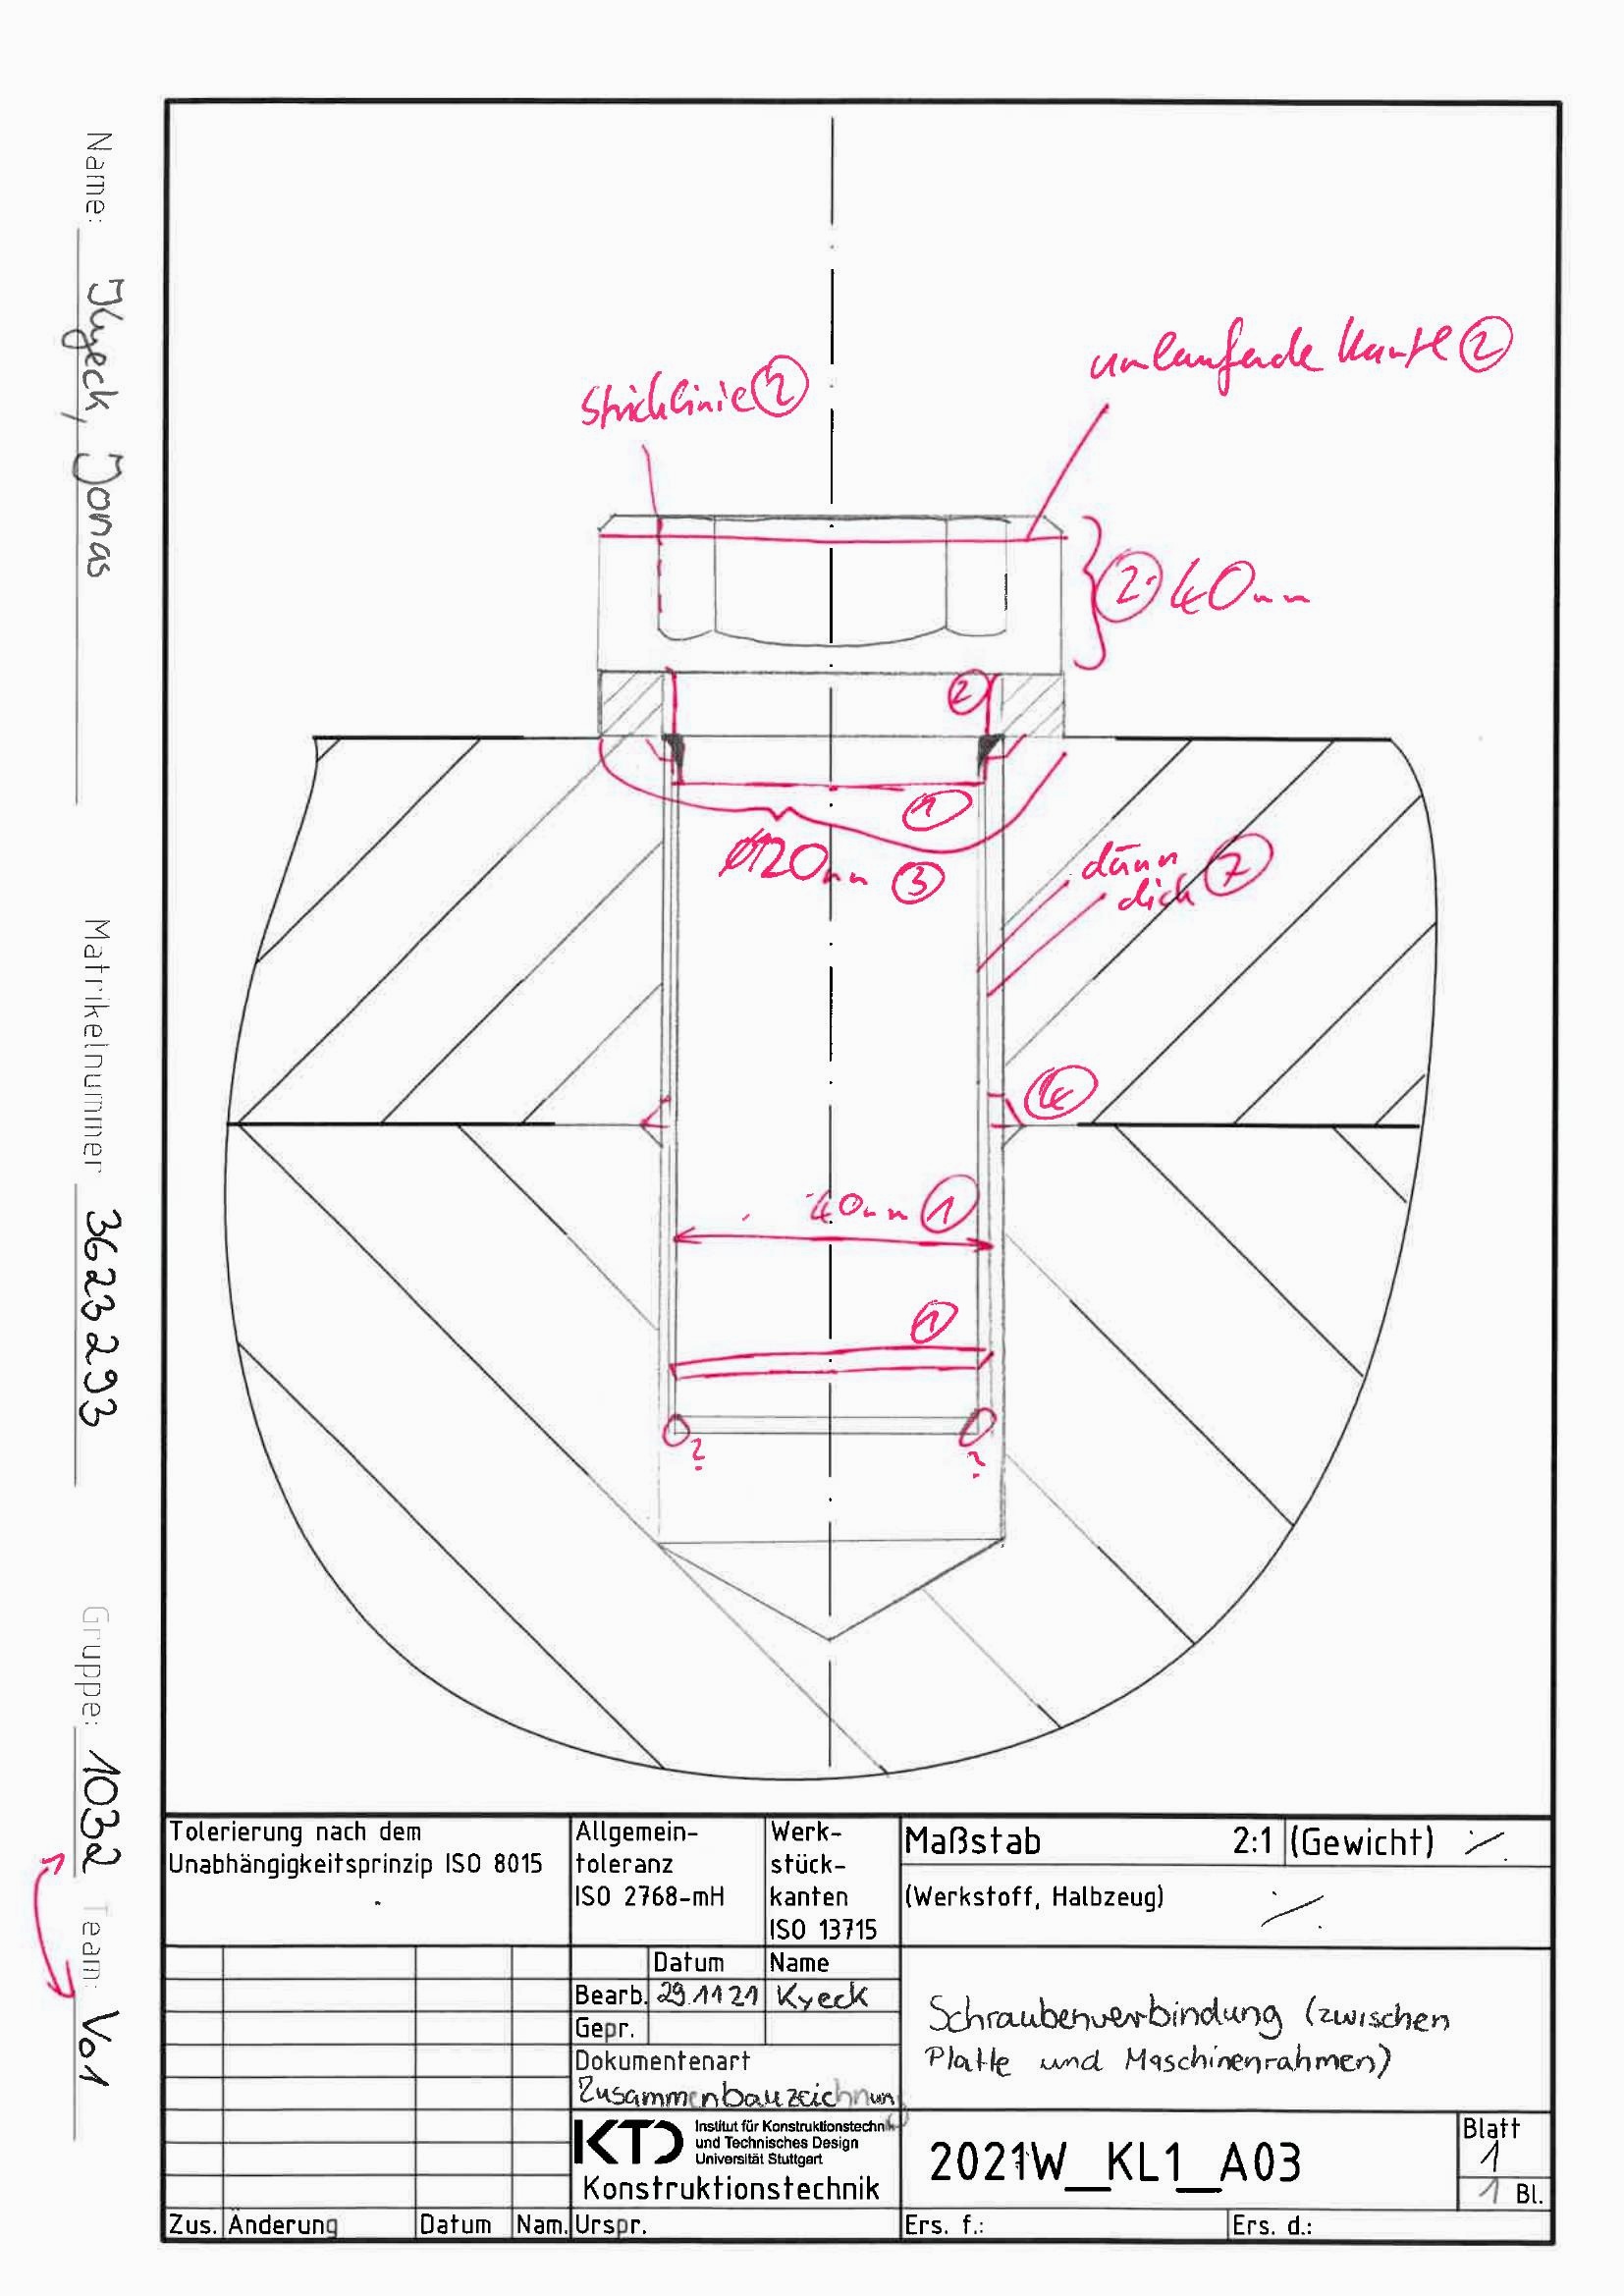 Name: Kyeck, Jonas
Matrikelnummer 3623293
Gruppe: 1032 Team: V01
umlaufende Kante ②
Strichlinie ②
② 40mm
②
①
Ø120mm ③
dünn
dick ⑦
④
40mm ①
①
? ?
Tolerierung nach dem
Unabhängigkeitsprinzip ISO 8015
Allgemein-
toleranz
ISO 2768-mH
Werk-
stück-
kanten
ISO 13715
Maßstab 2:1 (Gewicht) ⁒
(Werkstoff, Halbzeug) ⁒
Datum Name
Bearb. 29.11.21 Kyeck
Gepr.
Dokumentenart
Zusammenbauzeichnung
Schraubenverbindung (zwischen
Platte und Maschinenrahmen)
KTD Institut für Konstruktionstechnik
und Technisches Design
Universität Stuttgart
Konstruktionstechnik
2021W_KL1_A03
Blatt
1
1 Bl.
Zus. Änderung Datum Nam. Urspr. Ers. f.: Ers. d.: